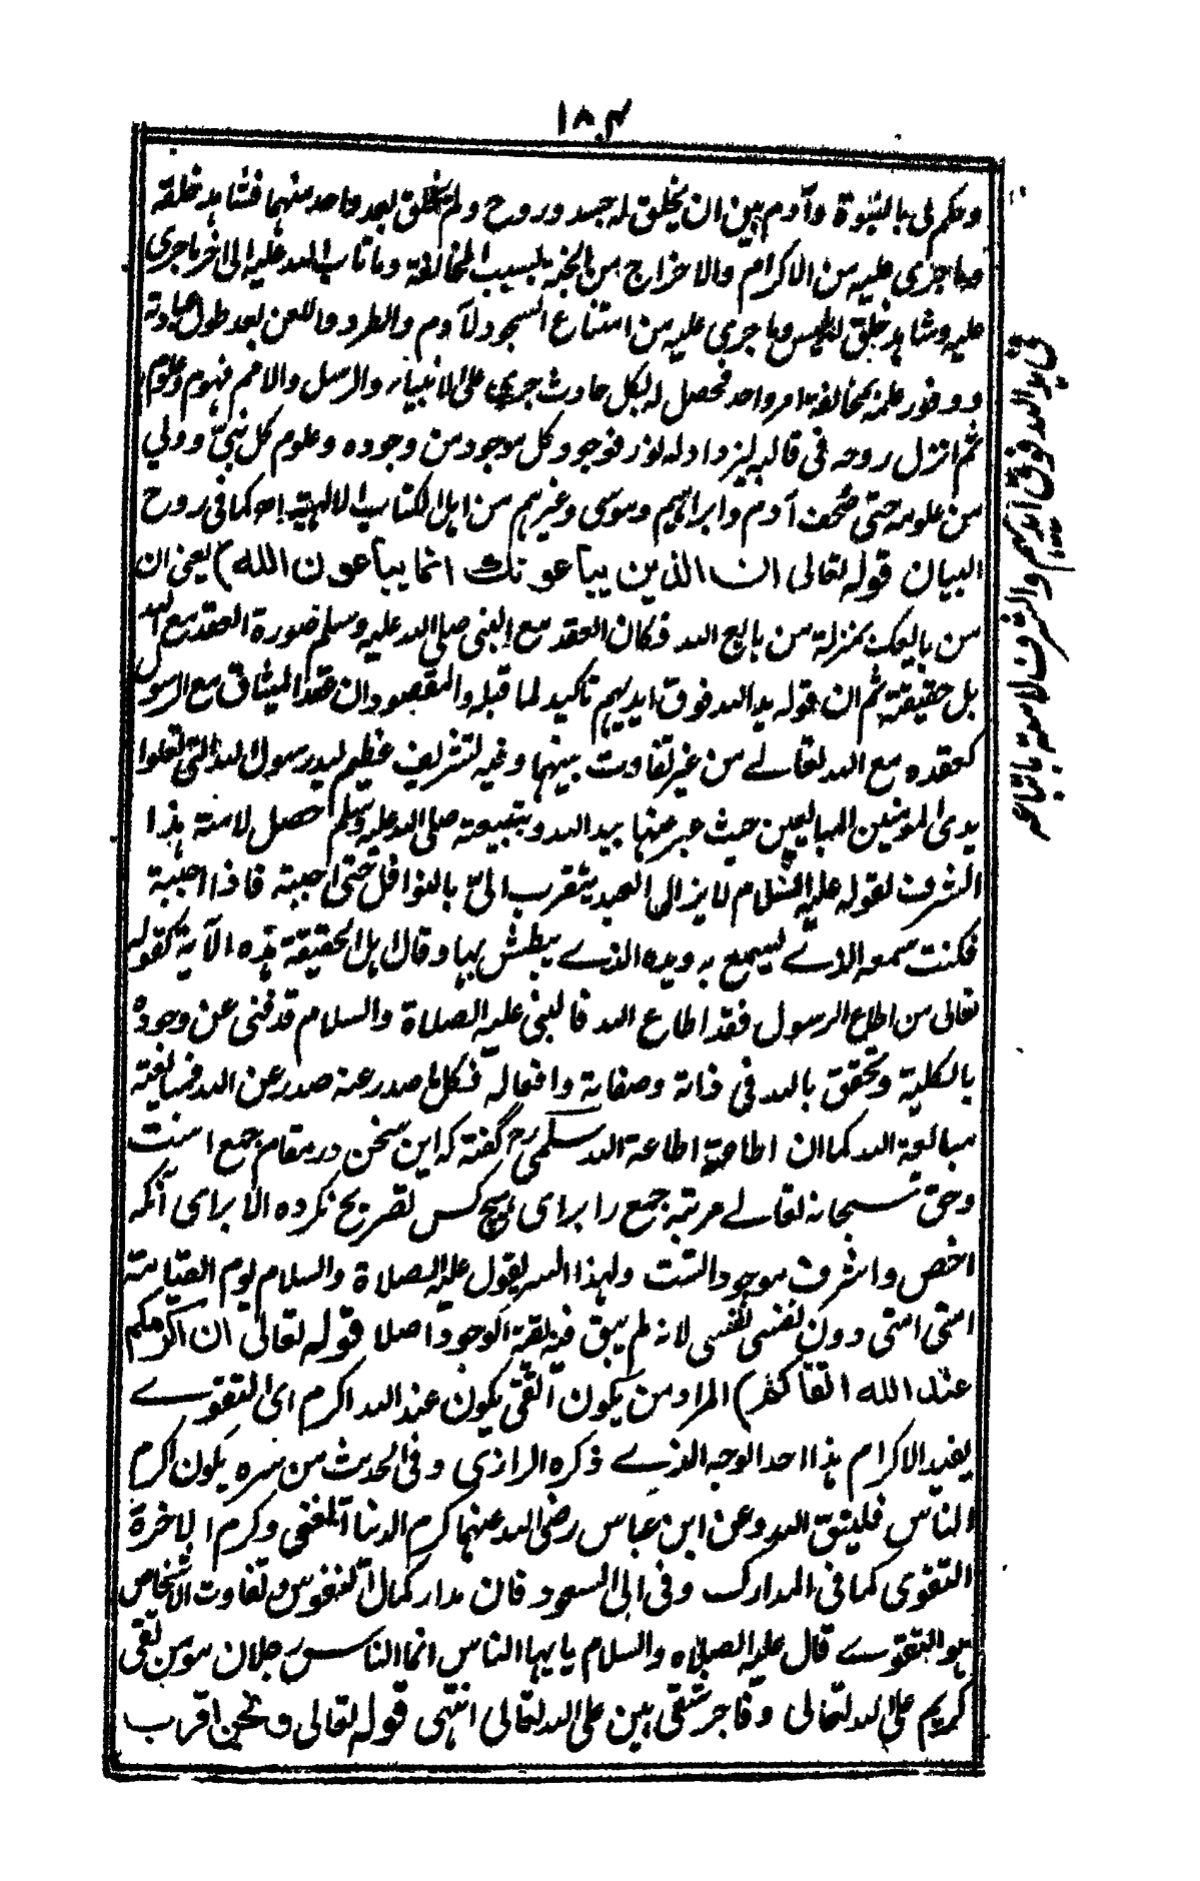 ١٨٠٣
وحکم لی بالنبوة وآدم بین ان یخلق له جسد وروح ولم یخلق بعد واحد منهما فشاهد خلقه
وما جری علیه من الاکرام والاخراج من الجنة بسبب المخالفة وما تاب الله علیه الی اخر ما جری
علیه وشاهد خلق ابلیس وما جری علیه من امتناع السجود لآدم والطرد واللعن بعد طول عبادته
ووفور علمه بمخالفة امر واحد فحصل له بکل حادث جری علی الانبیاء والرسل والامم فهوم وعلوم
ثم انزل روحه فی قالبه لیزداد له نور فوجود کل موجود من وجوده وعلوم کل نبی وولی
من علومه حتی صحف آدم وابراهیم وموسی وغیرهم من اهل الکتاب الالهیة اه کما فی روح
البیان قوله تعالی ان الذین یبایعونک انما یبایعون الله) یعنی ان
من بایعک بمنزلة من بایع الله فکان العقد مع النبی صلی الله علیه وسلم صورة العقد مع الله
بل حقیقته ثم ان قوله ید الله فوق ایدیهم تاکید لما قبله والمقصود ان عقد المیثاق مع الرسول
کعقده مع الله تعالے من غیر تفاوت بینهما وفیه لتشریف عظیم لید رسول الله التی تعلوا
یدی المومنین المبایعین حیث عبر عنها بید الله وبتبیعته صلی الله علیه وسلم حصل لامته هذا
الشرف لقوله علیه السلام لا یزالی العبد یتقرب الیّ بالنوافل حتی احببته فاذا احببته
فکنت سمعه الذے یسمع به ویده الذے یبطش بها وقال اهل الحقیقة هذه الآیة کقوله
تعالی من اطاع الرسول فقد اطاع الله فالنبی علیه الصلاة والسلام قد فنی عن وجوده
بالکلیة وتحقق بالله فی ذاته وصفاته وافعاله فکل ما صدر عنه صدر عن الله فمبایعته
مبایعة الله کما ان اطاعته اطاعة الله سلمی رح گفته که این سخن در مقام جمع است
وحق سبحانه تعالے مرتبه جمع را برای هیچ کس تصریح نکرده الا برای آنکه
اخص واشرف موجودات است ولهذا السر یقول علیه الصلاة والسلام یوم القیامة
امتی امتی دون نفسی نفسی لانه لم یبق فیه بقیة الوجود اصلا قوله تعالی ان اکرمکم
عند الله اتقاکم) المراد من یکون اتقی یکون عند الله اکرم ای التقوے
یفید الاکرام هذا احد الوجه الذے ذکره الرازی وفی الحدیث من سره یکون اکرم
الناس فلیتق الله وعن ابن عباس رضی الله عنهما کرم الدنیا الغنی وکرم الاخرة
التقوی کما فی المدارک وفی ابی السعود فان مدار کمال النفوس وتفاوت الاشخاص
هو التقوے قال علیه الصلاه والسلام یا ایها الناس انما الناس رجلان مومن تقی
کریم علی الله تعالی وفاجر شقی هین علی الله تعالی انتهی قوله تعالی ونحن اقرب
فی ید الله فوق ایدیهم والشرف لامته باتباعه